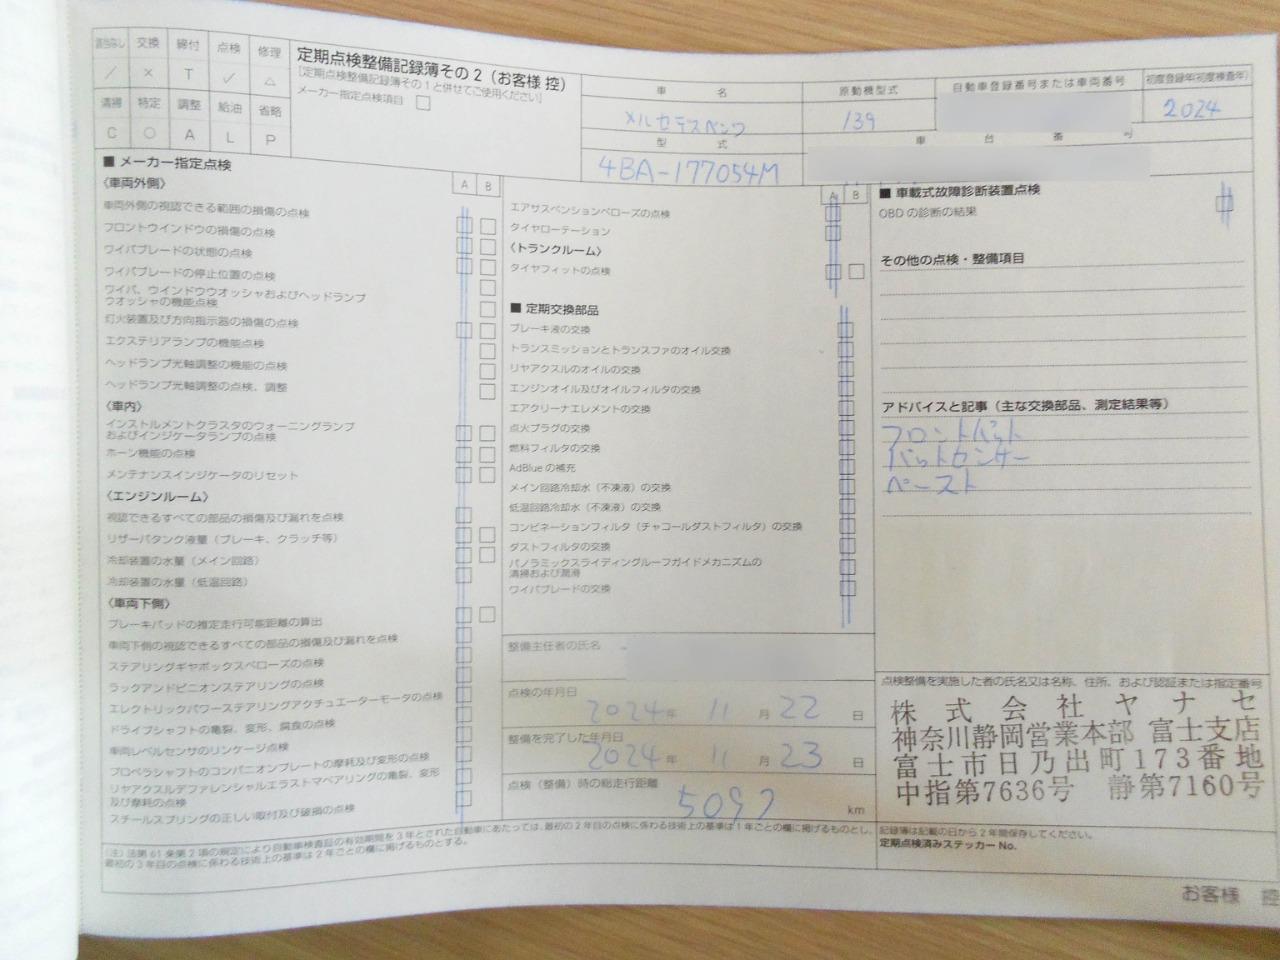 該当なし 交換 締付 点検 修理
／ × T ✓ △
清掃 特定 調整 給油 省略
C ○ A L P
定期点検整備記録簿その2（お客様 控）
［定期点検整備記録簿その1と併せてご使用ください］
メーカー指定点検項目
車 名
メルセデスベンツ
原動機型式
139
自動車登録番号または車両番号
初度登録年(初度検査年)
2024
型 式
4BA-177054M
車 台 番 号
■ メーカー指定点検
A B
〈車両外側〉
車両外側の視認できる範囲の損傷の点検
フロントウインドウの損傷の点検
ワイパブレードの状態の点検
ワイパブレードの停止位置の点検
ワイパ、ウインドウウオッシャおよびヘッドランプ
ウオッシャの機能点検
灯火装置及び方向指示器の損傷の点検
エクステリアランプの機能点検
ヘッドランプ光軸調整の機能の点検
ヘッドランプ光軸調整の点検、調整
〈車内〉
インストルメントクラスタのウォーニングランプ
およびインジケータランプの点検
ホーン機能の点検
メンテナンスインジケータのリセット
〈エンジンルーム〉
視認できるすべての部品の損傷及び漏れを点検
リザーバタンク液量（ブレーキ、クラッチ等）
冷却装置の水量（メイン回路）
冷却装置の水量（低温回路）
〈車両下側〉
ブレーキパッドの推定走行可能距離の算出
車両下側の視認できるすべての部品の損傷及び漏れを点検
ステアリングギヤボックスベローズの点検
ラックアンドピニオンステアリングの点検
エレクトリックパワーステアリングアクチュエーターモータの点検
ドライブシャフトの亀裂、変形、腐食の点検
車両レベルセンサのリンケージ点検
プロペラシャフトのコンパニオンプレートの摩耗及び変形の点検
リヤアクスルデファレンシャルエラストマベアリングの亀裂、変形
及び摩耗の点検
スチールスプリングの正しい取付及び破損の点検
A B
エアサスペンションベローズの点検
タイヤローテーション
〈トランクルーム〉
タイヤフィットの点検
■ 定期交換部品
ブレーキ液の交換
トランスミッションとトランスファのオイル交換
リヤアクスルのオイルの交換
エンジンオイル及びオイルフィルタの交換
エアクリーナエレメントの交換
点火プラグの交換
燃料フィルタの交換
AdBlueの補充
メイン回路冷却水（不凍液）の交換
低温回路冷却水（不凍液）の交換
コンビネーションフィルタ（チャコールダストフィルタ）の交換
ダストフィルタの交換
パノラミックスライディングルーフガイドメカニズムの
清掃および潤滑
ワイパブレードの交換
整備主任者の氏名
点検の年月日
2024年 11月 22日
整備を完了した年月日
2024年 11月 23日
点検（整備）時の総走行距離
5097 km
■ 車載式故障診断装置点検
OBDの診断の結果
その他の点検・整備項目
アドバイスと記事（主な交換部品、測定結果等）
フロントパット
パットセンサー
ペースト
点検整備を実施した者の氏名又は名称、住所、および認証または指定番号
株式会社ヤナセ
神奈川静岡営業本部 富士支店
富士市日乃出町173番地
中指第7636号 静第7160号
（注）法第61条第2項の規定により自動車検査証の有効期間を3年とされた自動車にあたっては、最初の2年目の点検に係わる技術上の基準は1年ごとの欄に掲げるものとし、
最初の3年目の点検に係わる技術上の基準は2年ごとの欄に掲げるものとする。
記録簿は記載の日から2年間保存してください。
定期点検済みステッカーNo.
お客様 控